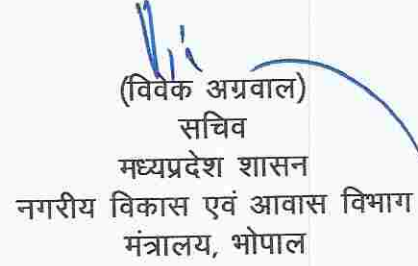 (विवेक अग्रवाल)
सचिव
मध्यप्रदेश शासन
नगरीय विकास एवं आवास विभाग
मंत्रालय, भोपाल